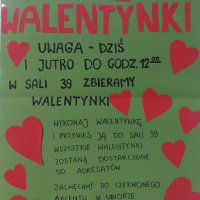 WALENTYNKI
UWAGA - DZIŚ
I JUTRO DO GODZ. 12:00
W SALI 39 ZBIERAMY
WALENTYNKI
WYKONAJ WALENTYNKĘ
I PRZYNIEŚ JĄ DO SALI 39
WSZYSTKIE WALENTYNKI
ZOSTANĄ DOSTARCZONE
DO ADRESATÓW
ZACHĘCAMY DO CZERWONEGO
AKCENTU W UBIORZE